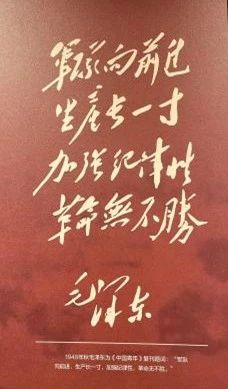 军队向前进
生产长一寸
加强纪律性
革命無不勝
毛泽东
1948年秋毛泽东为《中国青年》复刊题词：“军队
向前进，生产长一寸，加强纪律性，革命无不胜。”